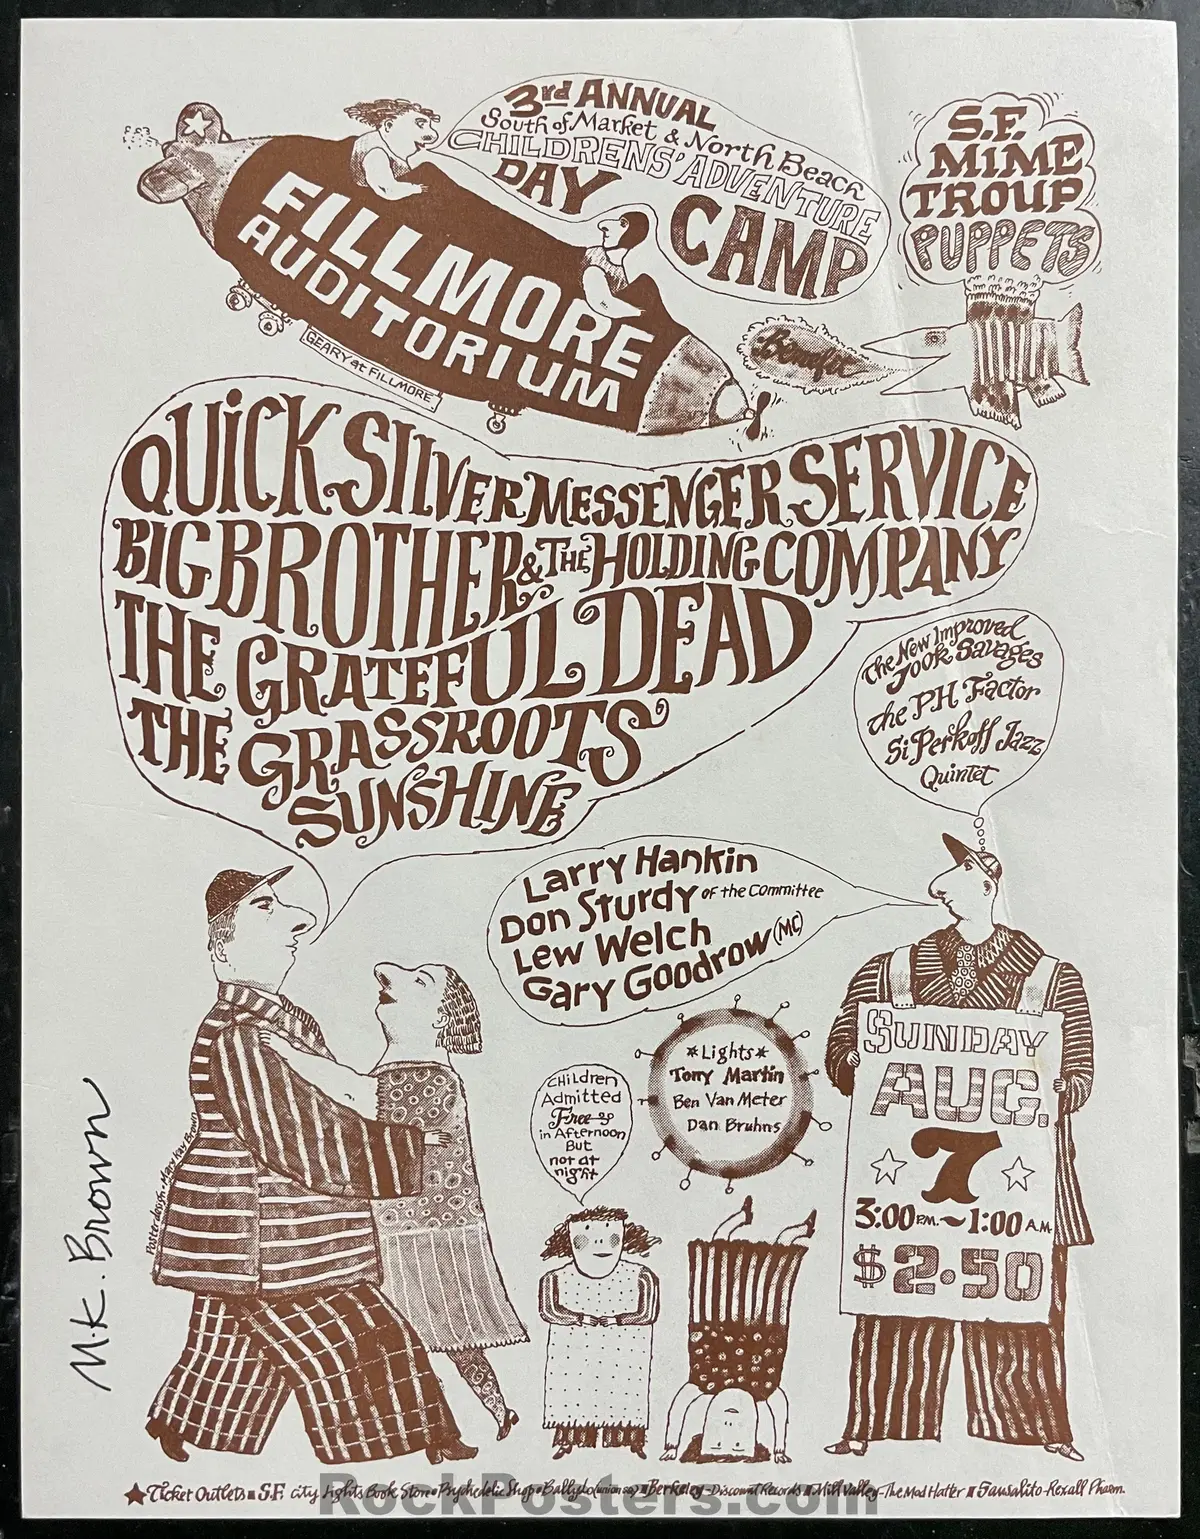 3rd ANNUAL
South of Market & North Beach
CHILDRENS' ADVENTURE
DAY CAMP
S.F.
MIME
TROUP
PUPPETS
FILLMORE
AUDITORIUM
GEARY at FILLMORE.
Benefit
QUiCK SILVER MESSENGER SERVICE
BIG BROTHER & THE HOLDING COMPANY
THE GRATEFUL DEAD
THE GRASSROOTS
SUNSHINE
The New Improved
Jook Savages
the P.H. Factor
Si Perkoff Jazz
Quintet
Larry Hankin
Don Sturdy of the Committee
Lew Welch
Gary Goodrow (MC)
*Lights*
Tony Martin
Ben Van Meter
Dan Bruhns
Children
Admitted
Free
in Afternoon
But
not at
night
SUNDAY
AUG.
7
3:00 P.M. ~ 1:00 A.M.
$2.50
Poster design • Mary Kay Brown
M.K. Brown
★ Ticket Outlets ■ S.F. City Lights Book Store • Psychedelic Shop • Bally Lo (union sq) ■ Berkeley - Discount Records ■ Mill Valley - The Mad Hatter ■ Sausalito - Rexall Pharm.
RockPosters.com